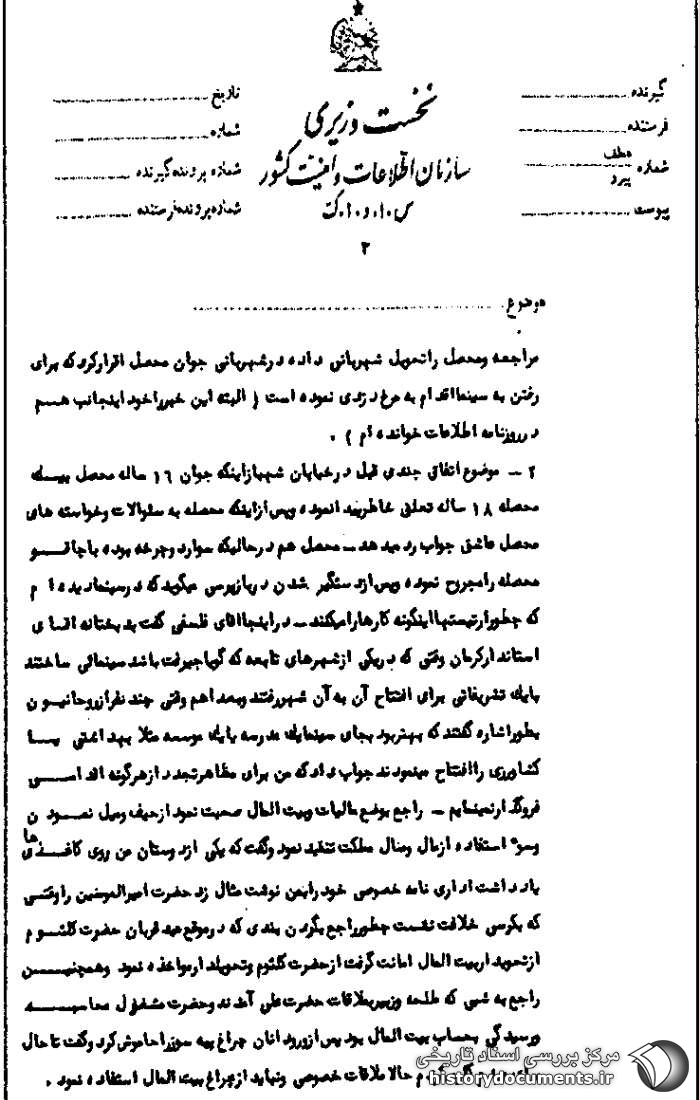 گیرنده
فرستنده
شماره عطف
پیرو
پیوست
نخست وزیری
سازمان اطلاعات و امنیت کشور
س.ا.و.ا.ک
۲
تاریخ
شماره
شماره پرونده گیرنده
شماره پرونده فرستنده
موضوع
مراجعه ومحصل راتحویل شهربانی داده درشهربانی جوان محصل اقرارکرد که برای
رفتن به سینمااقدام به مرغ دزدی نموده است ( البته این خبرراخود اینجانب هم
در روزنامه اطلاعات خوانده ام ) .
۲ – موضوع اتفاق چندی قبل در خیابان شهبازاینکه جوان ۱۶ ساله محصل بیک
محصله ۱۸ ساله تعلق خاطرپیدا نموده وپس ازاینکه محصله به سئوالات وخواسته های
محصل عاشق جواب رد میدهد – محصل هم درحالیکه سوار دوچرخه بوده با چاقو
محصله رامجروح نموده وپس ازدستگیر شدن دربازپرسی میگوید که درسینما دیده ام
که چطورآرتیستهااینگونه کارهارامیکنند – دراینجاآقای فلسفی گفت بدبختانه آقای
استاندارکرمان وقتی که دریکی ازشهرهای تابعه که گویاجیرفت باشد سینمائی ساختند
بایک تشریفاتی برای افتتاح آن به آن شهررفتند وبعداهم وقتی چند نفرازروحانیون
بطوراشاره گفتند که بهتربود بجای سینمایک مدرسه یایک موسسه مثلا بهداشتی یا
کشاورزی راافتتاح مینمودند جواب دادکه من برای مظاهرتجدد ازهرگونه اقدامی
فروگذارنمینمایم – راجع بوضع مالیات وبیت المال صحبت نمود ازحیف ومیل نمودن
وسوء استفاده ازمال ومنال مملکت تنقید نمود وگفت که یکی ازدوستان من روی کاغذهای
یادداشت اداری نامه خصوصی خود رابمن نوشت مثال زد حضرت امیرالمومنین راوقتی
که بکرسی خلافت نشست چطورراجع بگردن بندی که درموقع عید قربان حضرت کلثوم
ازتحویدار بیت المال امانت گرفت ازحضرت کلثوم وتحویلدارمواخذه نمود وهمچنین
راجع به شبی که طلحه وزبیربملاقات حضرت علی آمدند وحضرت مشغول محاسبه
ورسیدگی بحساب بیت المال بود پس ازورود آنان چراغ پیه سوزراخاموش کرد وگفت تاحال
حالا ملاقات خصوصی ونباید ازچراغ بیت المال استفاده نمود .
مرکز بررسی اسناد تاریخی
historydocuments.ir